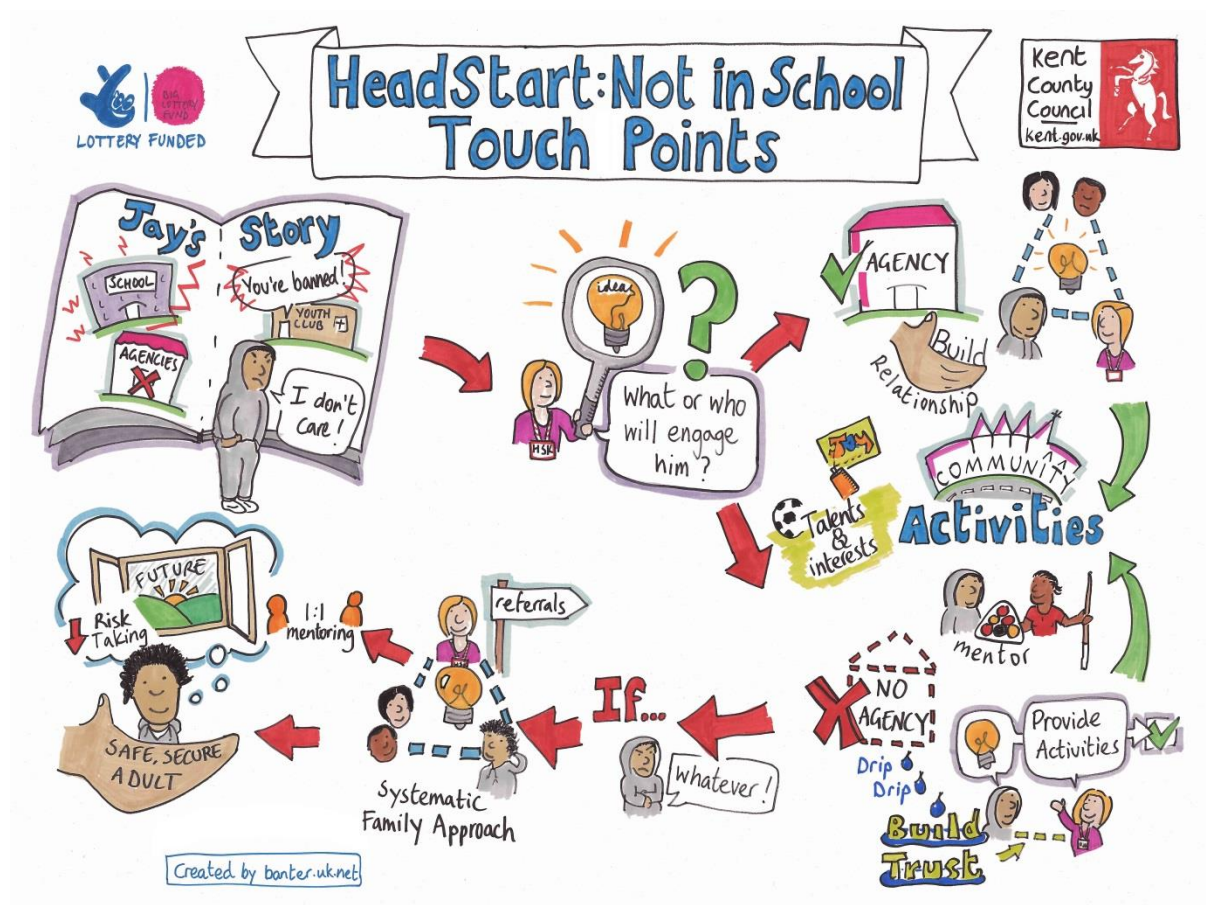 HeadStart: Not in School
Touch Points
BIG
LOTTERY
FUND
LOTTERY FUNDED
Kent
County
Council
kent.gov.uk
Jay's Story
SCHOOL
AGENCIES
You're banned!
YOUTH
CLUB
I don't
care!
ideas
HSK
What or who
will engage
him?
AGENCY
Build
Relationship
Jay
Talents
&
interests
COMMUNITY
Activities
mentor
NO
AGENCY
Drip
Drip
Build
Trust
Provide
Activities
If...
whatever!
referrals
Systematic
Family Approach
1:1
mentoring
FUTURE
Risk
Taking
SAFE, SECURE
ADULT
Created by banter.uk.net